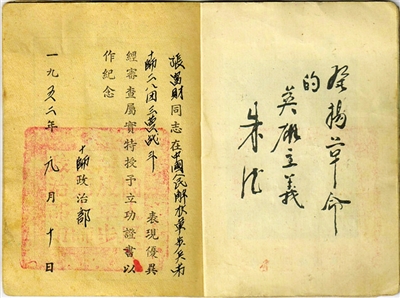 發揚革命
的
英雄主義
朱德
張富財同志在中國人民解放軍步兵第
十師二八团三营战斗 表現優異
經審查屬實特授予立功證書以
作紀念
十師政治部
一九五二年 九月十日